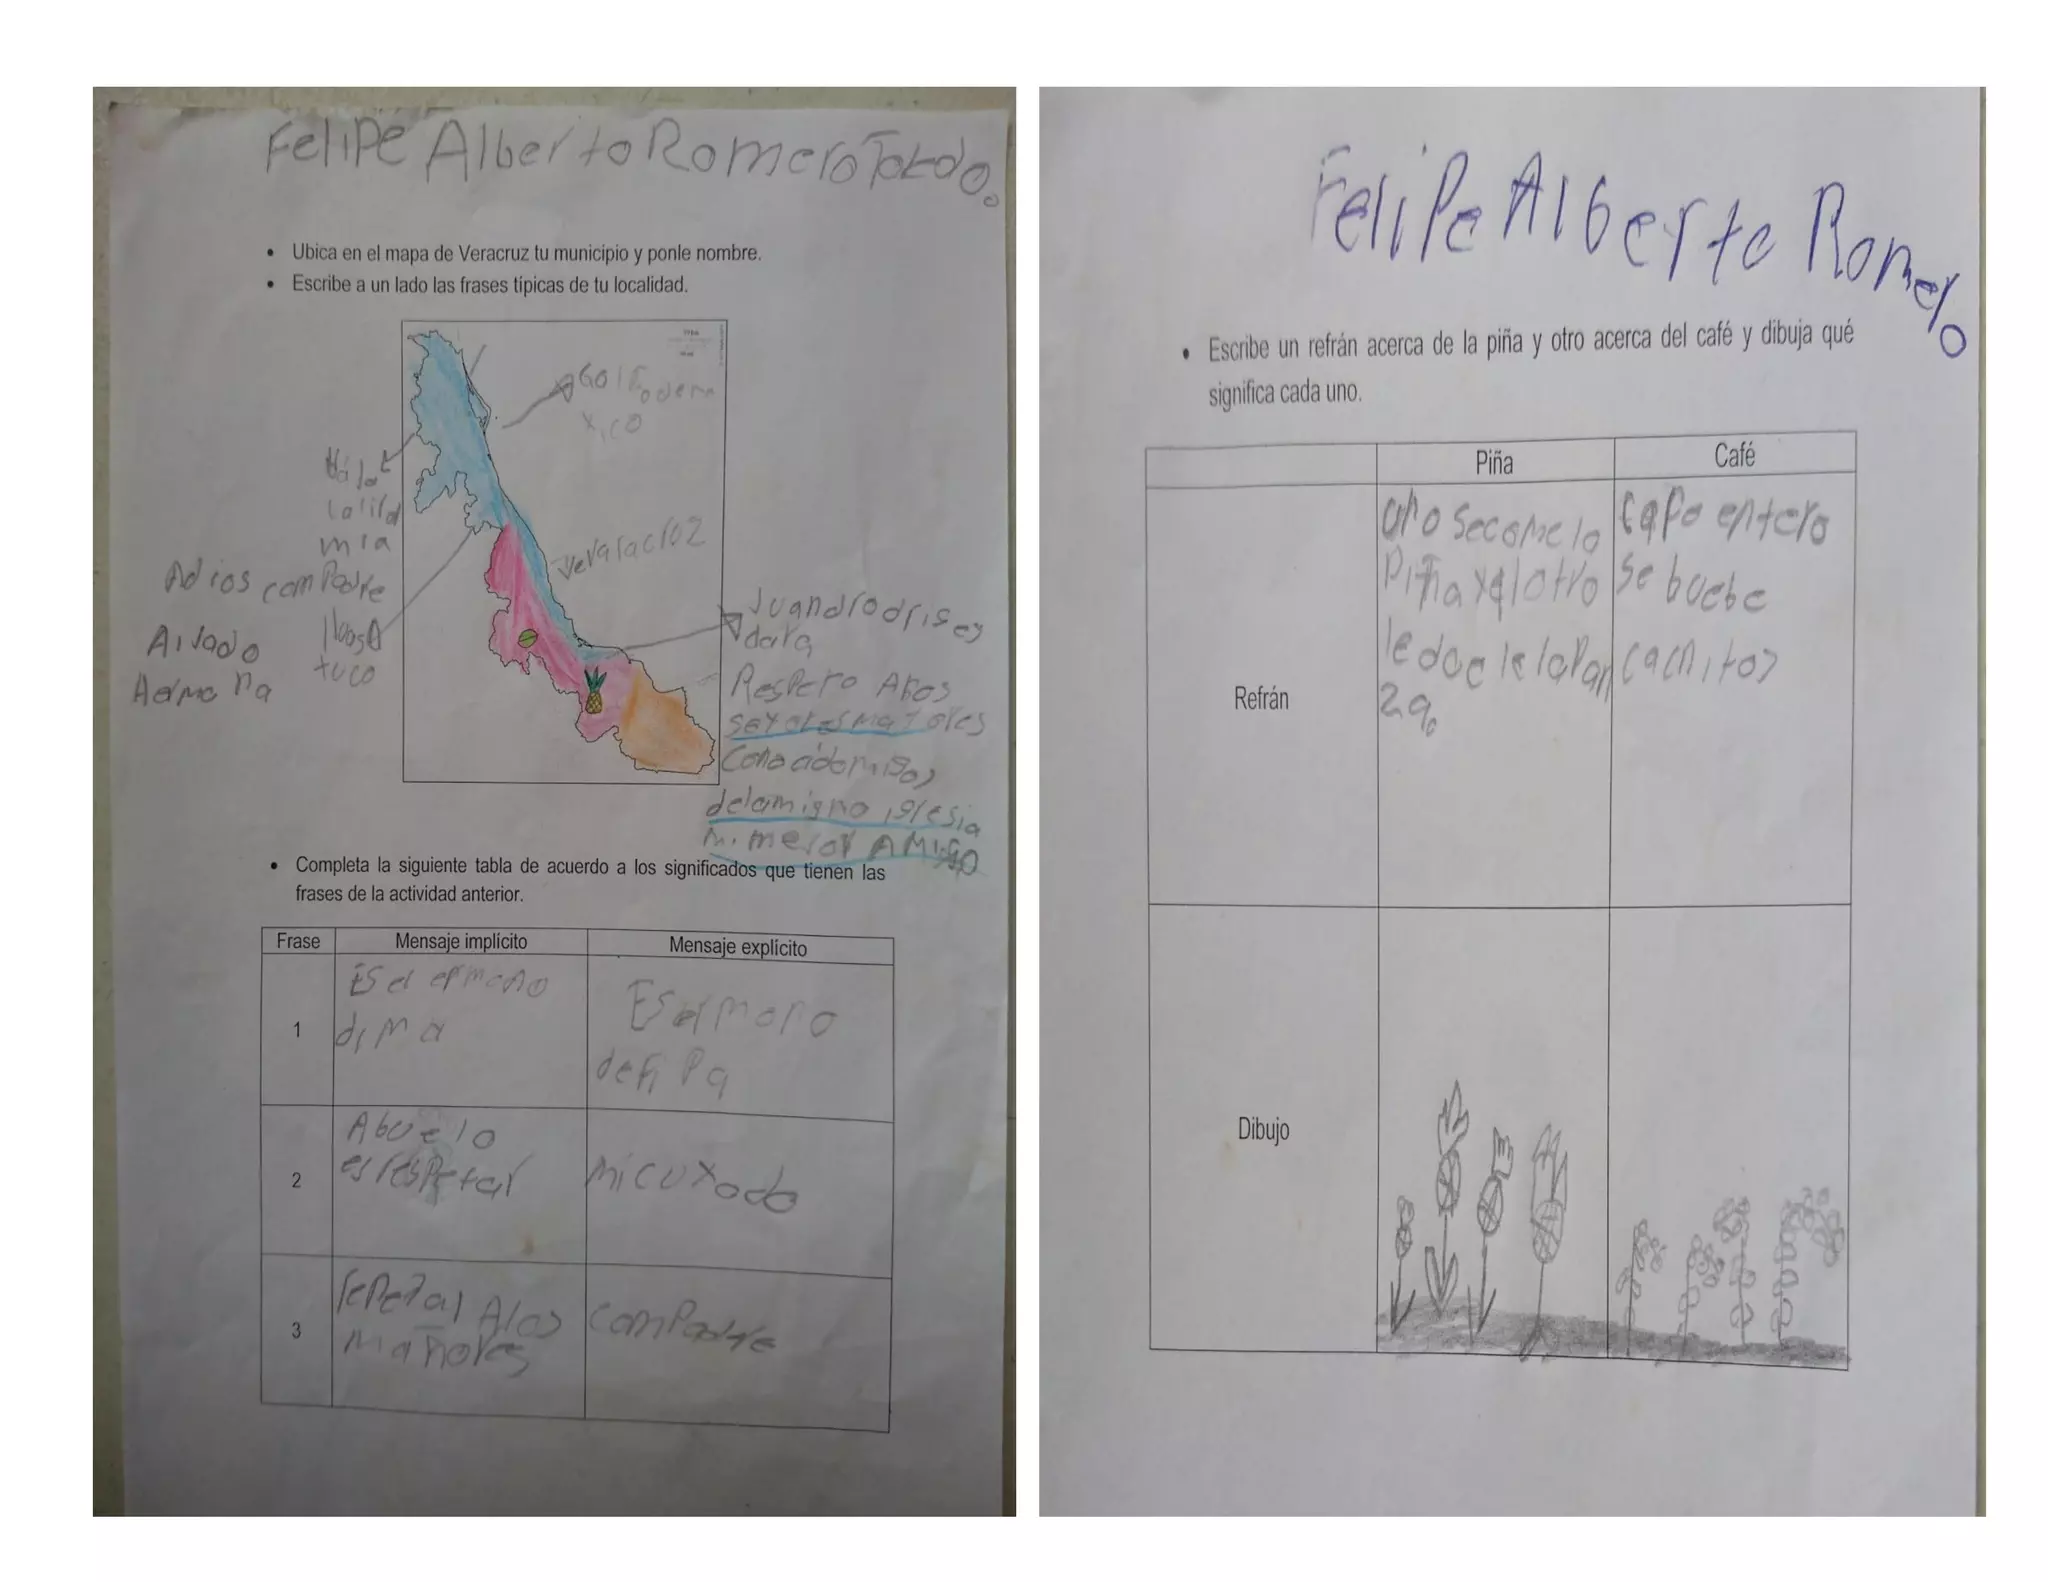 Felipe Alberto Romero Toledo.
• Ubica en el mapa de Veracruz tu municipio y ponle nombre.
• Escribe a un lado las frases típicas de tu localidad.
Golfo de m
xico
Veracruz
mia
Adios compadre
Ailado
tuco
Juandrodrisey
dara
Respeto Alos
seyores mayores
delamigno iglesia
mi mejor AMigo
• Completa la siguiente tabla de acuerdo a los significados que tienen las
frases de la actividad anterior.
Frase Mensaje implícito Mensaje explícito
1
Es el ermano
di ma
Es ermano
defi Pa
2
Abuelo
es respetar
micuxado
3
Alos
mañores
comPadre
Felipe Alberto Romero
• Escribe un refrán acerca de la piña y otro acerca del café y dibuja qué
significa cada uno.
Piña Café
Refrán
uno secome lo
Piña yel otro
le doele lapan
za.
cafe entero
se buebe
cachitos
Dibujo